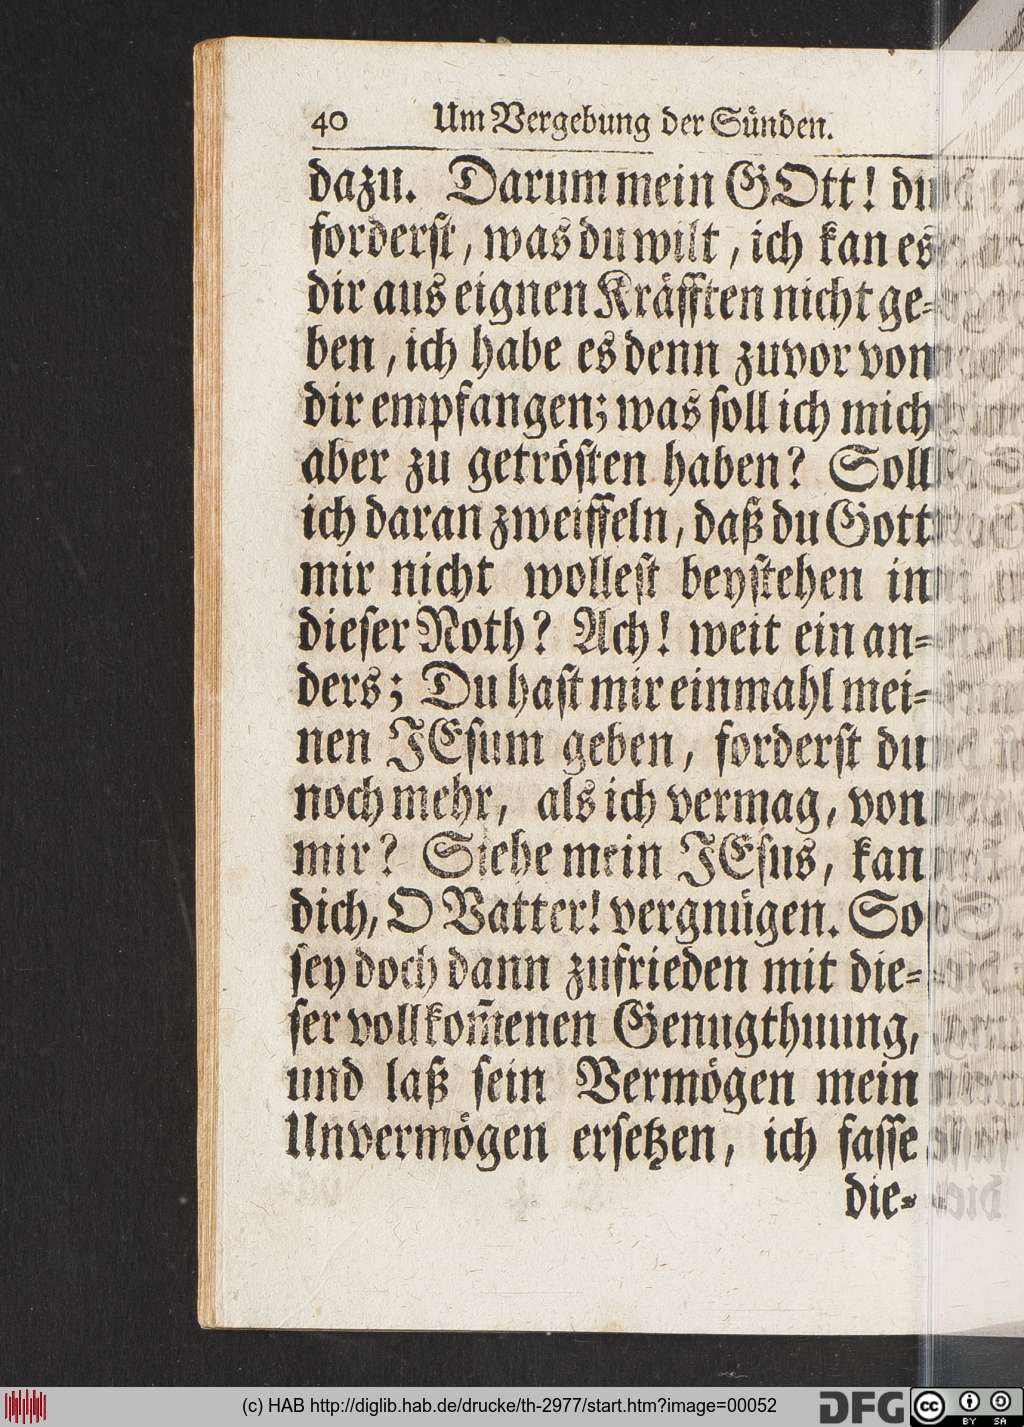 40 Um Vergebung der Sünden.
dazu. Darum mein GOtt! du
forderst, was du wilt, ich kan es
dir aus eignen Kräfften nicht ge-
ben, ich habe es denn zuvor von
dir empfangen; was soll ich mich
aber zu getrösten haben? Soll
ich daran zweiffeln, daß du Gott
mir nicht wollest beystehen in
dieser Noth? Ach! weit ein an-
ders; Du hast mir einmahl mei-
nen JEsum geben, forderst du
noch mehr, als ich vermag, von
mir? Siehe mein JEsus, kan
dich, O Vatter! vergnügen. So
sey doch dann zufrieden mit die-
ser vollkom̃enen Genugthuung,
und laß sein Vermögen mein
Unvermögen ersetzen, ich fasse
die-
(c) HAB http://diglib.hab.de/drucke/th-2977/start.htm?image=00052
DFG
cc BY SA